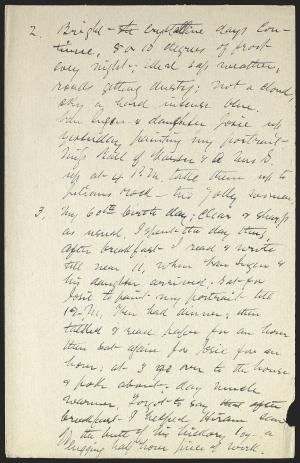 2. Bright - the crystalline days con-
tinue, 8 or 10 degrees of frost
every night; ideal sap weather,
roads getting dusty; not a cloud,
sky a hard intense blue.
Van Ingen & daughter Josie up
yesterday painting my portrait -
Miss Ball of & Mrs
up at 4 P.M. take them up to
Julians Rock - two jolly women.
3. My 60th birth day; clear & sharp
as usual. I spent the day thus,
after breakfast I read & wrote
till near 11, when Van Ingen &
his daughter arrived. Sat for
Josie to paint my portrait till
12 M, then had dinner; then
talked & read paper for an hour
then sat again for Josie for an
hour; at 3 we over to the house
& poke about - day much
warmer. Forgot to say that after
breakfast I helped Hiram saw
the butt of his hickory log - a
tugging half hour piece of work.